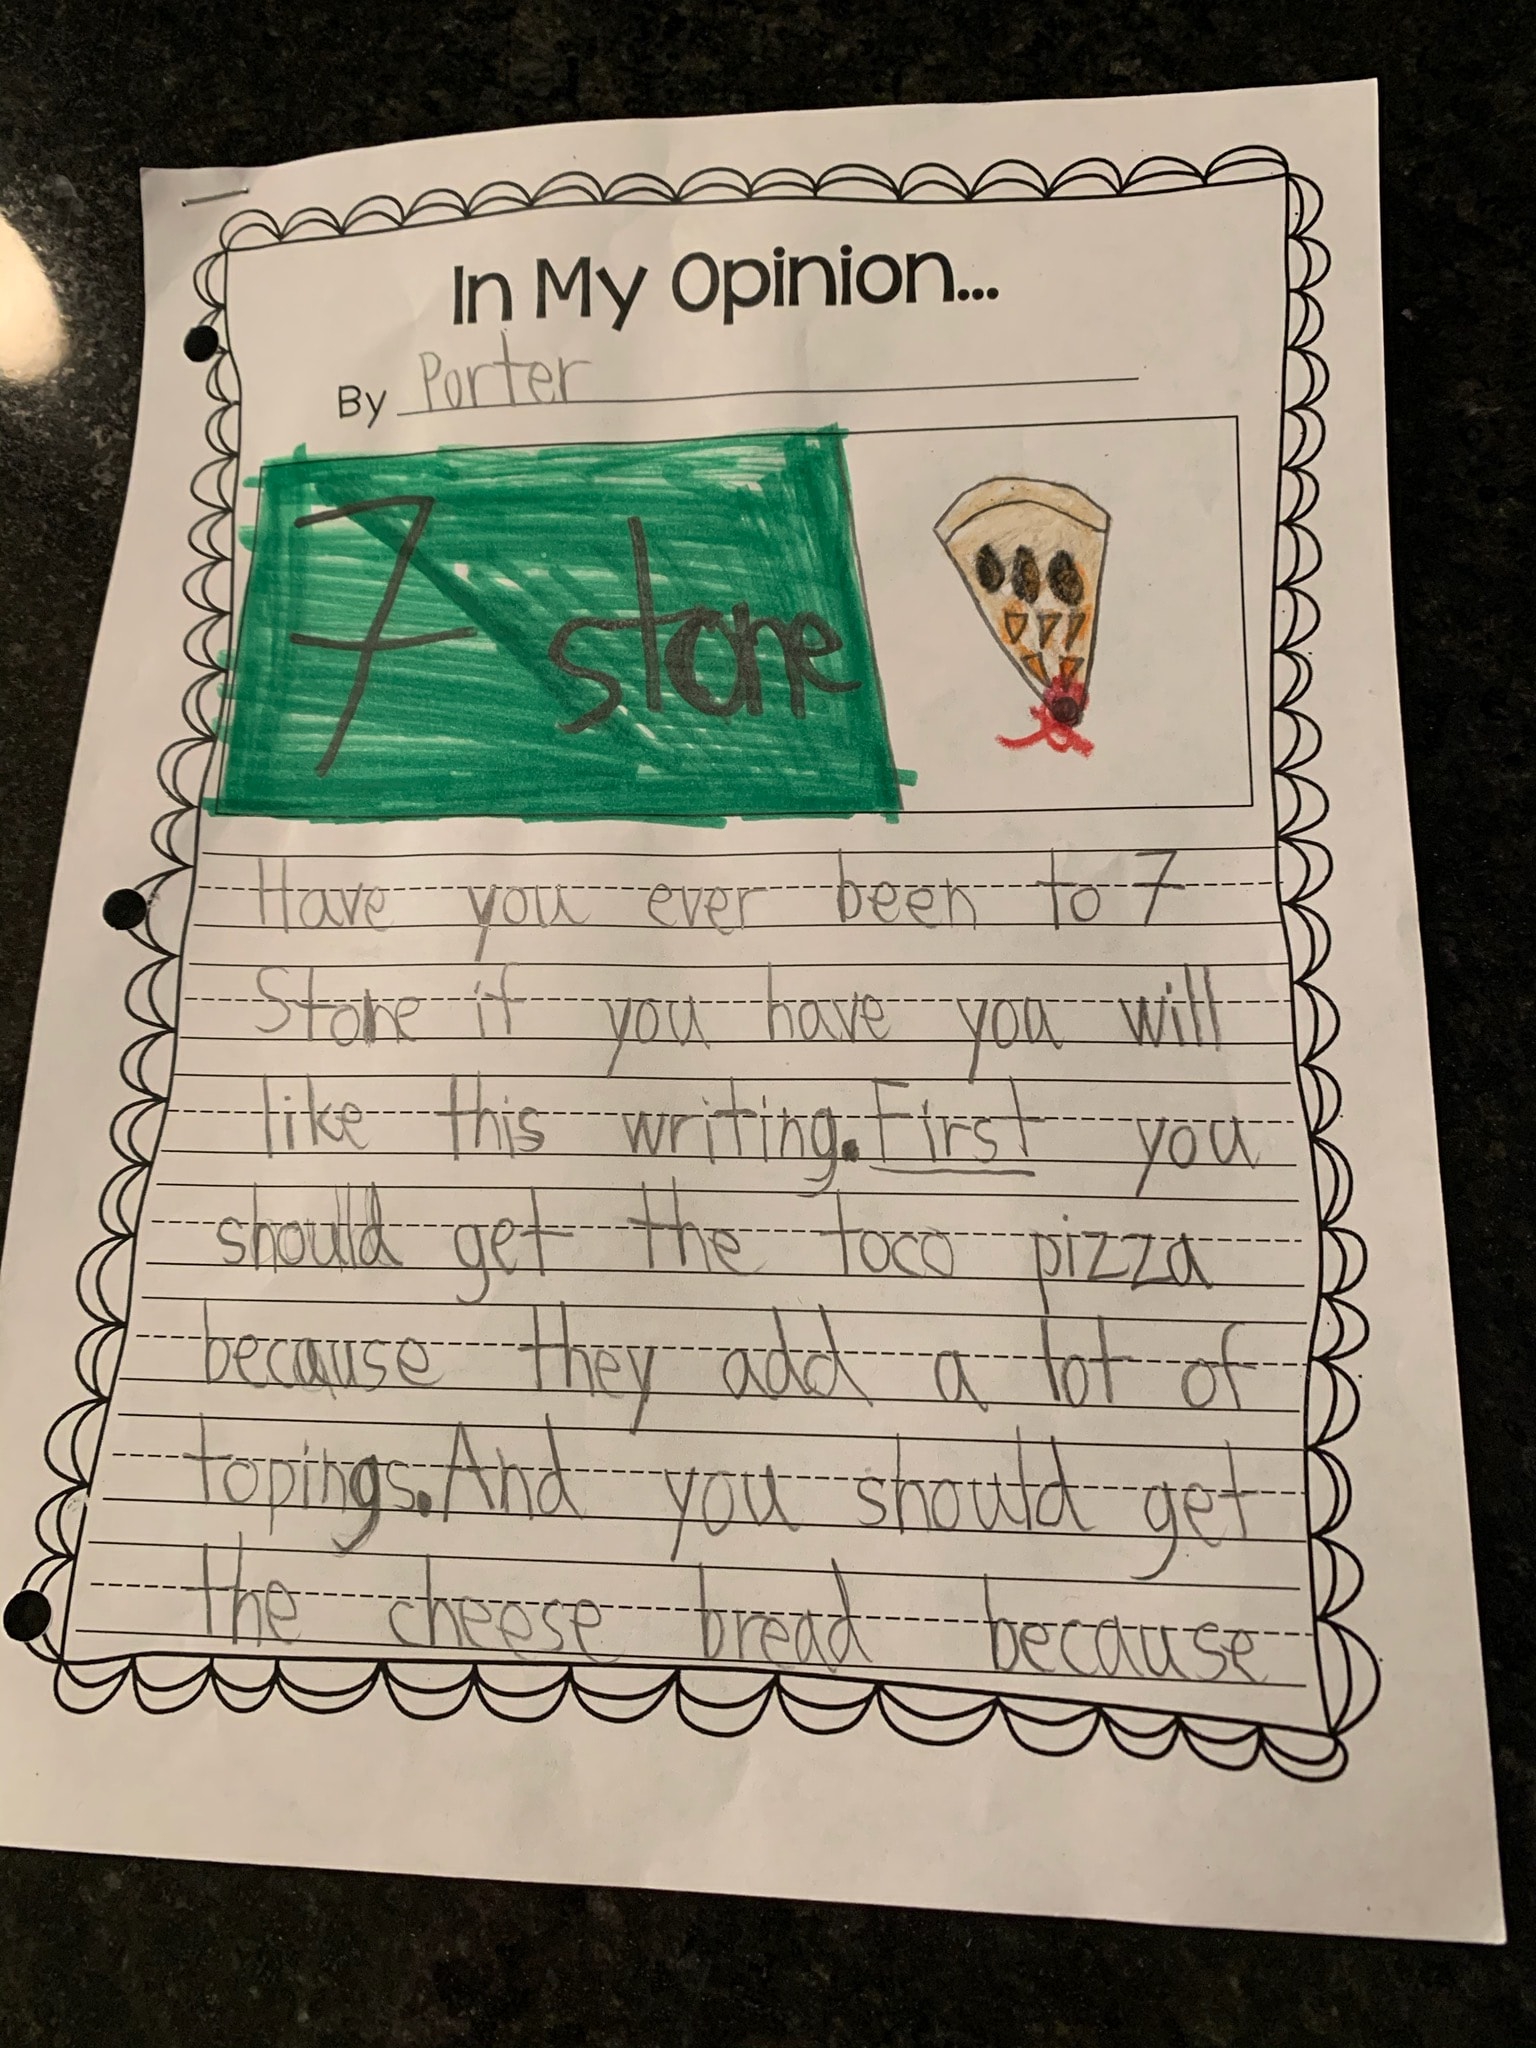 In My Opinion...
By Porter
7 stone
Have you ever been to 7
Stone if you have you will
like this writing. First you
should get the toco pizza
because they add a lot of
topings. And you should get
the cheese bread because